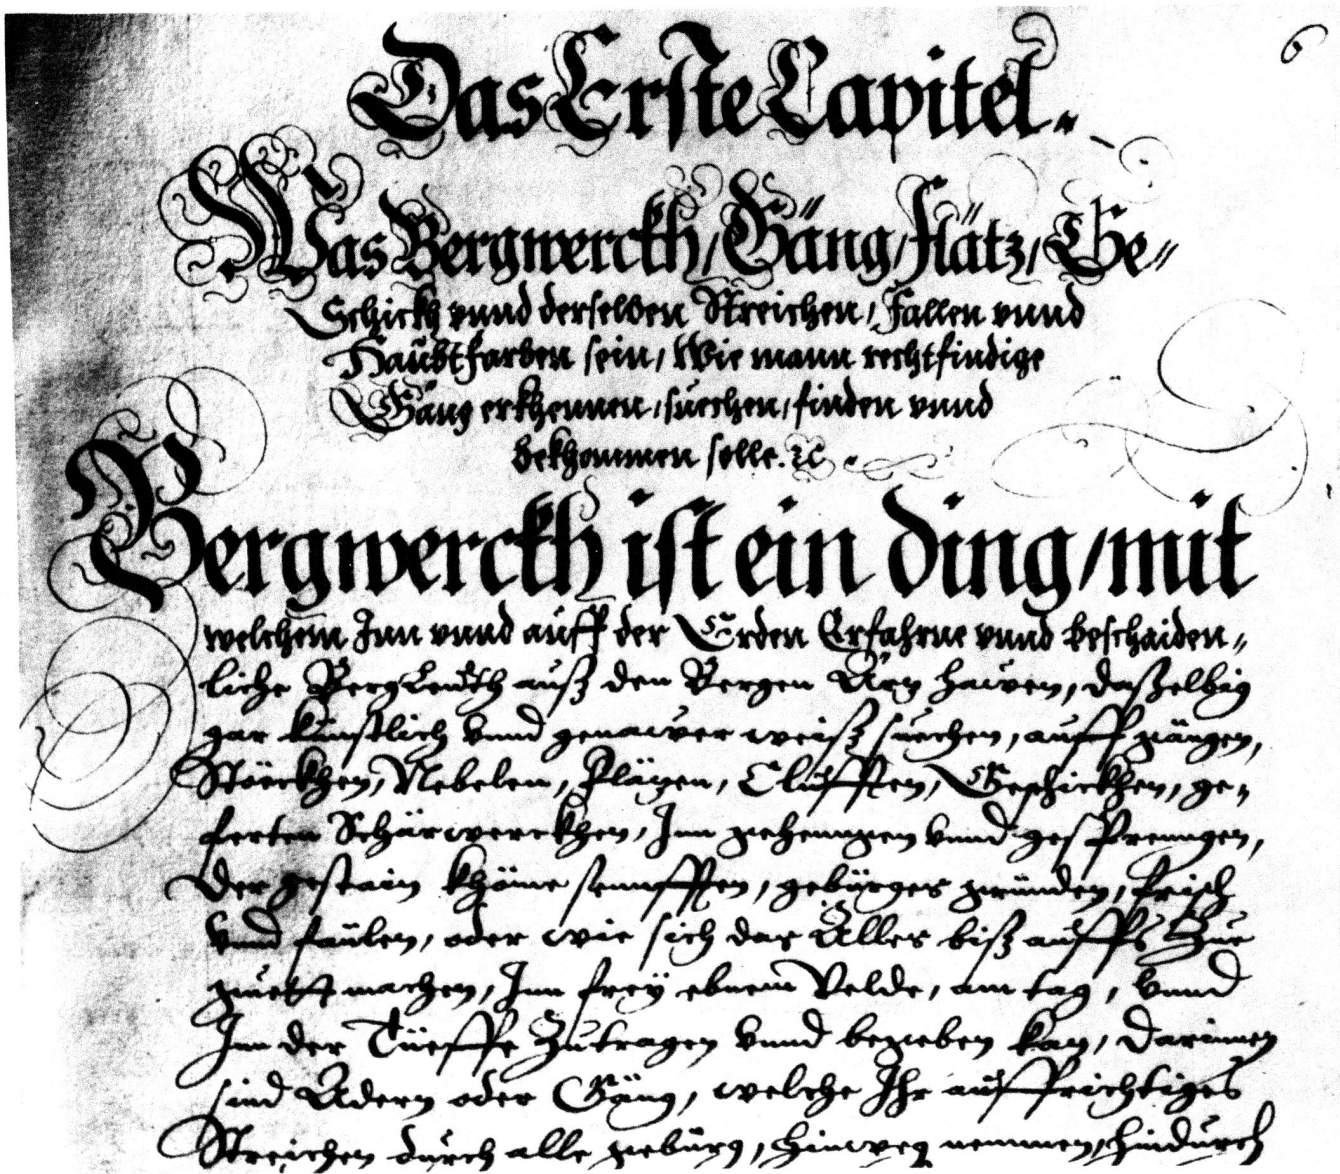 6
Das Erste Capitel.
Was Bergwerckh / Gäng / flätz / Ge〃
Schickh vnnd derselben Streichen / Fallen vnnd
Haubtfarben sein / Wie mann rechtfindige
Gäng erkhennen / suechen / finden vnnd
bekhommen solle. ꝛc.
Bergwerckh ist ein ding / mit
welchem Inn vnnd auff der Erden Erfahrne vnnd beschaiden〃
liche Bergleuth auß den Bergen Ärtz hawen, daßelbig
gar künstlich vnnd genawer weiß suechen, auff gängen,
Stöckhen, Nebelen, flätzen, Clufften, Geschickhen, ge〃
ferten Schärwerckhen, Inn gehenngen vnnd gesprenngen,
Der gestain senfften, gebürges gründen, frisch
vnnd faulen, oder wie sich das Alles biß auffs Zue
machen, Inn frey ebnem Velde, am tag, vnnd
Inn der Tüeffe Zutragen vnnd begeben kan, Darinnen
sind Adern oder Gäng, welche Ihr auffrichtiges
Streichen durch alle gebürg, hinweg nemmen, hindurch